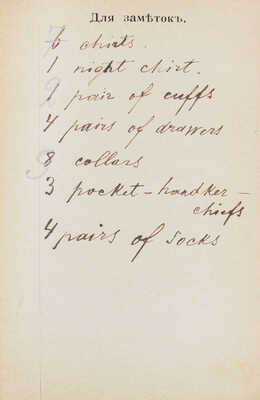 Для замѣтокъ.
6 chirts.
1 night chirt.
1 pair of cuffs
4 pairs of drawers
8 collars
3 pocket-handker-
chiefs
4 pairs of socks